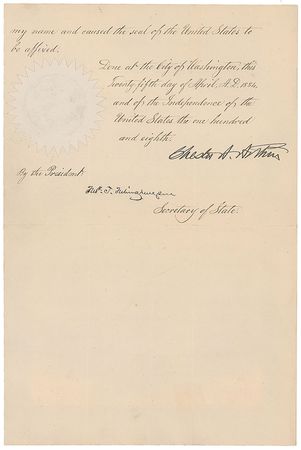 my name and caused the seal of the United States to
be affixed.
Done at the City of Washington, this
Twenty fifth day of April, A.D. 1884,
and of the Independence of the
United States the one hundred
and eighth.
Chester A. Arthur
By the President:
Fred'k. T. Frelinghuysen
Secretary of State.